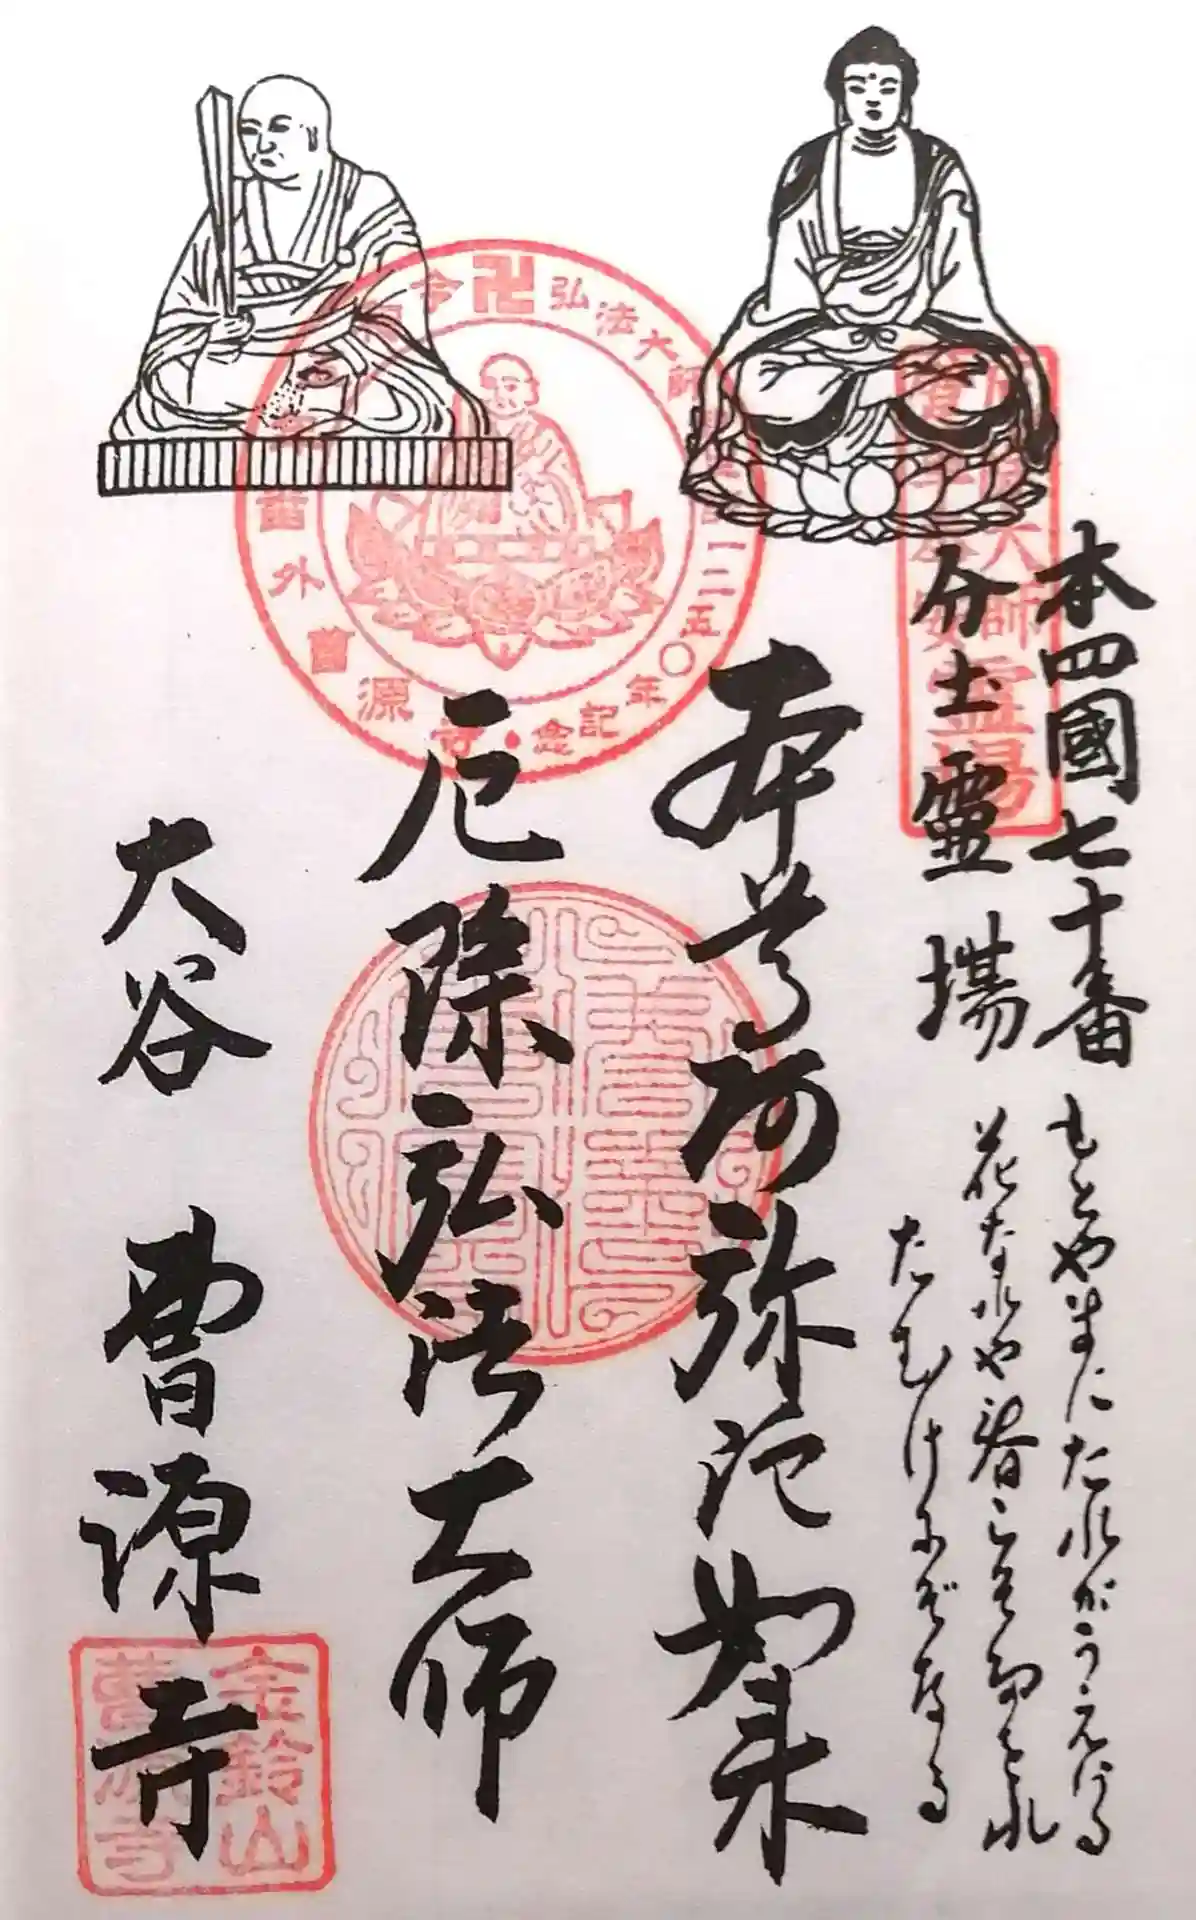 本四國七十番
分土靈場
もとやまにたれがうえける
花なれや春こそたをれ
たむけにぞなる
本尊阿弥陀如来
厄除弘法大師
大谷 曹源寺
弘法大師
一二五〇年記念
番外曹源寺
大師
靈場
金鈴山
曹源寺